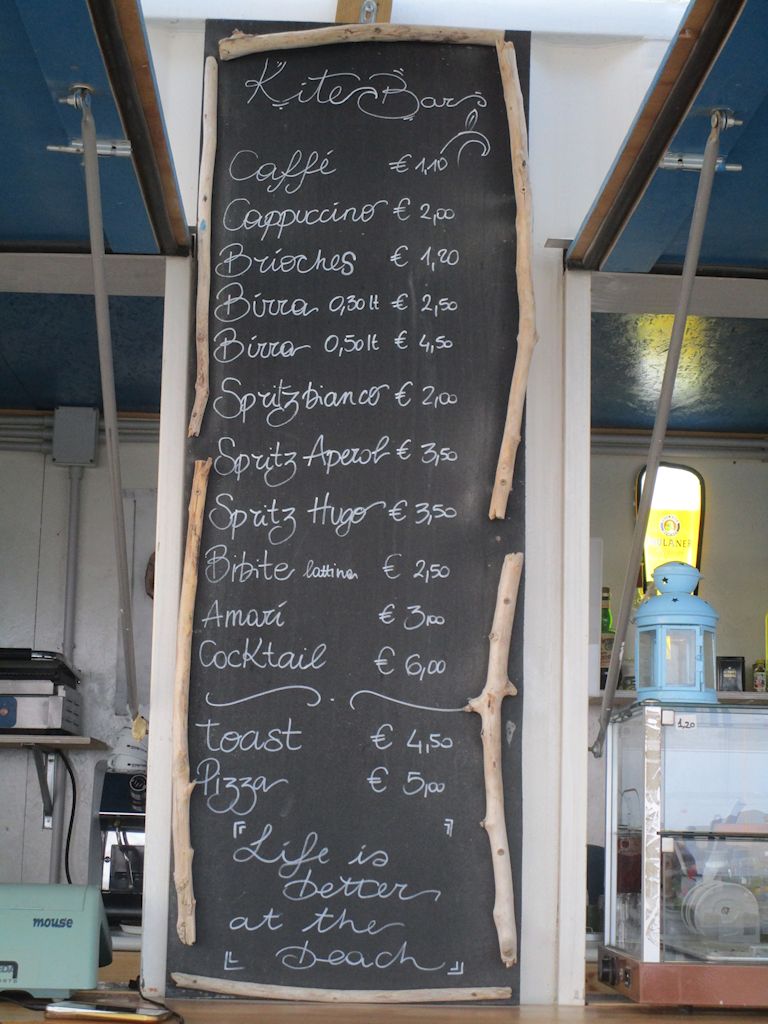 Kite Bar
Caffé € 1,10
Cappuccino € 2,00
Brioches € 1,20
Birra 0,30 lt € 2,50
Birra 0,50 lt € 4,50
Spritz bianco € 2,00
Spritz Aperol € 3,50
Spritz Hugo € 3,50
Bibite lattina € 2,50
Amari € 3,00
Cocktail € 6,00
toast € 4,50
Pizza € 5,00
Life is
better
at the
beach
mouse
1,20